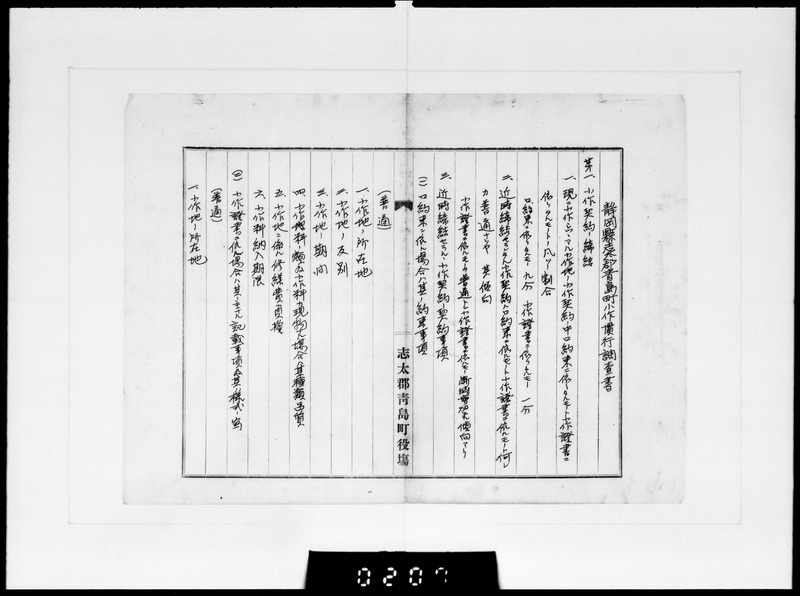 靜岡縣志太郡青島町小作慣行調査書
第一、小作契約ノ締結
一、現ニ小作セシムル小作地ノ小作契約中口約束ニ依リタルモノト小作證書ニ
依リタルモノトノ凡ソノ割合
口約束ニ依リタルモノ 九分 小作證書ニ依リタルモノ 一分
二、近時締結セラルル小作契約ハ口約束ニ依ルモノト小作證書ニ依ルモノト何レ
カ普通ナリヤ 其傾向
小作證書ニ依ルモノヲ普通トシ小作證書ニ依ルモノ漸時増加スル傾向アリ
三、近時締結セラルル小作契約ノ契約事項
(一)口約束ニ依ル場合ハ其ノ約束事項
(普通)
一、小作地ノ所在地
二、小作地ノ反別
三、小作地ノ期間
四、小作料ノ額及小作料カ現物ナル場合ハ其種類品質
五、小作地ニ係ル修繕費負擔
六、小作料納入期限
(二)小作證書ニ依ル場合ハ其ノ主ナル記載事項及其樣式ノ寫
(普通)
一、小作地ノ所在地
志太郡青島町役場
0207